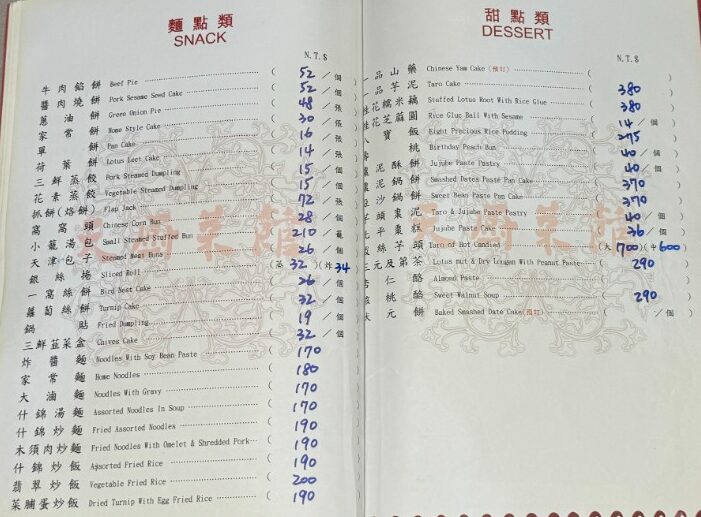 麵點類
SNACK
N.T.$
牛肉餡餅 Beef Pie ( 52 / 個 )
醬肉燒餅 Pork Sesame Seed Cake ( 52 / 個 )
蔥油餅 Green Onion Pie ( 48 / 張 )
家常餅 Home Style Cake ( 30 / 張 )
單餅 Pan Cake ( 16 / 張 )
荷葉餅 Lotus Leet Cake ( 14 / 張 )
三鮮蒸餃 Pork Steamed Dumpling ( 15 / 個 )
花素蒸餃 Vegetable Steamed Dumpling ( 15 / 個 )
抓餅(烙餅) Flap Jack ( 72 / 張 )
窩窩頭 Chinese Corn Bun ( 28 / 個 )
小籠湯包 Small Steamed Stuffed Bun ( 210 / 籠 )
天津包子 Steamed Meat Buns ( 26 / 個 )
銀絲捲 Sliced Roll (蒸 32 )(炸 34
一窩絲餅 Bird Nest Cake ( 26 / 個 )
蘿蔔絲餅 Turnip Cake ( 32 / 個 )
鍋貼 Fried Dumpling ( 19 / 個 )
三鮮韮菜盒 Chives Cake ( 32 / 個 )
炸醬麵 Noodles With Soy Bean Paste ( 170 )
家常麵 Home Noodles ( 180 )
大滷麵 Noodles With Gravy ( 170 )
什錦湯麵 Assorted Noodles In Soup ( 170 )
什錦炒麵 Fried Assorted Noodles ( 190 )
木須肉炒麵 Fried Noodles With Omelet & Shredded Pork ( 190 )
什錦炒飯 Assorted Fried Rice ( 190 )
翡翠炒飯 Vegetable Fried Rice ( 200 )
菜脯蛋炒飯 Dried Turnip With Egg Fried Rice ( 190 )
甜點類
DESSERT
N.T.$
一品山藥 Chinese Yam Cake (預訂) ( )
一品芋泥 Taro Cake ( 380 )
桂花糯米藕 Stuffed Lotus Root With Rice Glue ( 380 )
桂花芝蔴圓 Rice Gluc Ball With Sesame ( 14 / 個 )
八寶飯 Eight Precious Rice Pudding ( 275 )
桃 Birthday Peach Bun ( 40 / 個 )
棗泥酥餅 Jujube Paste Pastry ( 40 / 個 )
棗泥鍋餅 Smashed Dates Paste Pan Cake ( 370 )
豆沙鍋餅 Sweet Bean Paste Pan Cake ( 370 )
芋頭棗泥 Taro & Jujube Paste Pastry ( 40 / 個 )
北平棗糕 Jujube Paste Cake ( 36 / 個 )
拔絲芋頭 Taro of Hot Candied (大 700 )(中 600 )
三元及第茶 Lotus nut & Dry Longan With Peanut Paste ( 290 )
杏仁酪 Almond Paste ( )
核桃酪 Sweet Walnut Soup ( 290 )
狀元餅 Baked Smashed Date Cake (預訂) ( / 個 )